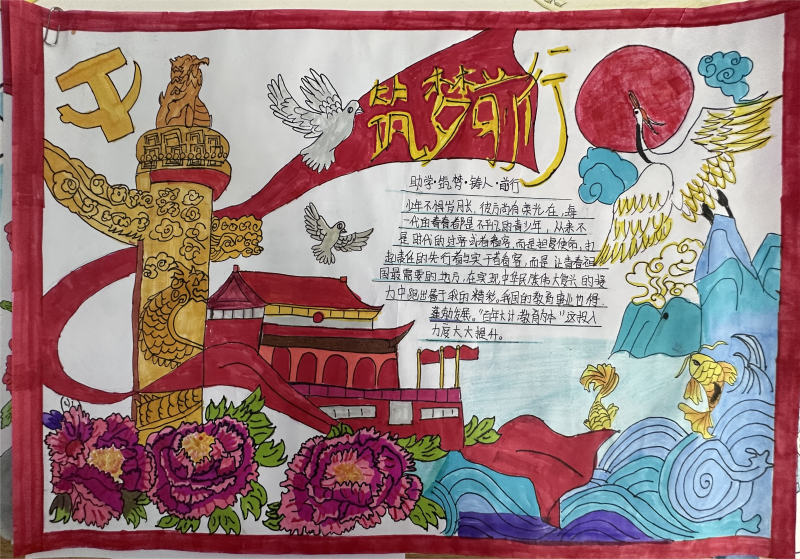 筑梦前行
助学·筑梦·铸人·前行
少年不惧岁月长,彼方尚有荣光在,每
一代的青年都是不
的青少年,从来不
是时代的过客或看客,而是担负使命,扛
起责任的先行者与实干
者,而是让青春在祖
国最需要的地方,在实现中华民族伟大复兴的接
力中跑出属于我的精彩。我国的教育事业也得
蓬勃发展。"百年大计教育为本"这投入
力度大大提升。